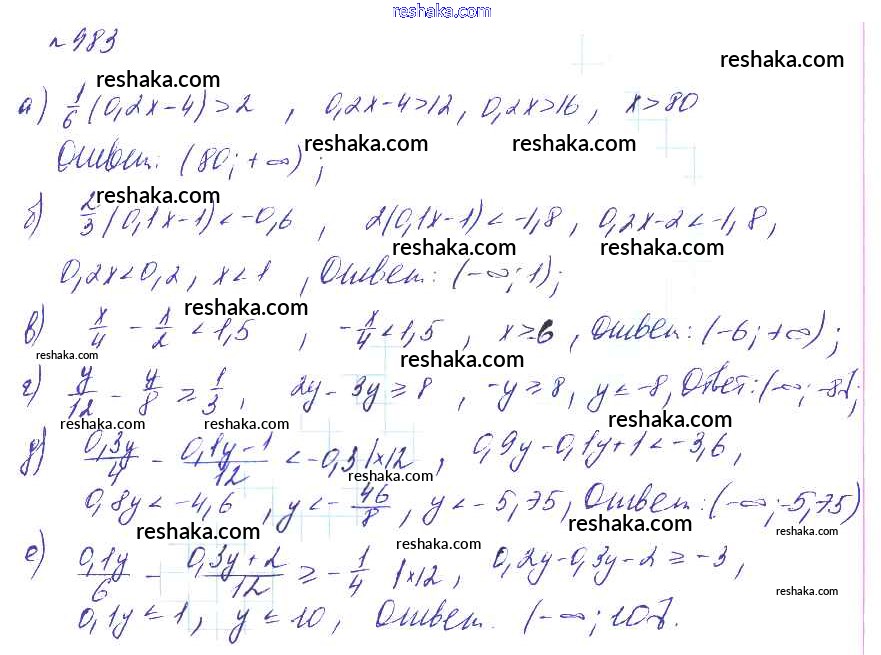 reshaka.com
№983
reshaka.com
reshaka.com
а) 1/6 (0,2x-4)>2 , 0,2x-4>12, 0,2x>16, x>80
reshaka.com reshaka.com
Ответ: (80; +∞);
reshaka.com
б) 2/3 (0,1x-1)<-0,6 , 2(0,1x-1)<-1,8, 0,2x-2<-1,8,
reshaka.com reshaka.com
0,2x<0,2, x<1 , Ответ: (-∞; 1);
reshaka.com
в) x/4 - x/2 < 1,5 , -x/4 < 1,5 , x>-6 , Ответ: (-6; +∞);
reshaka.com reshaka.com
г) y/12 - y/8 ≥ 1/3, 2y-3y≥8 , -y≥8, y≤-8, Ответ: (-∞; -8];
reshaka.com reshaka.com reshaka.com
д) 0,3y/4 - 0,1y-1/12 < -0,3 |×12 , 0,9y-0,1y+1<-3,6,
reshaka.com
0,8y<-4,6 , y<-46/8, y<-5,75, Ответ: (-∞; -5,75)
reshaka.com reshaka.com reshaka.com
reshaka.com
е) 0,1y/6 - 0,3y+2/12 ≥ -1/4 |×12, 0,2y-0,3y-2≥-3,
reshaka.com
0,1y≤1, y≤10, Ответ. (-∞; 10].